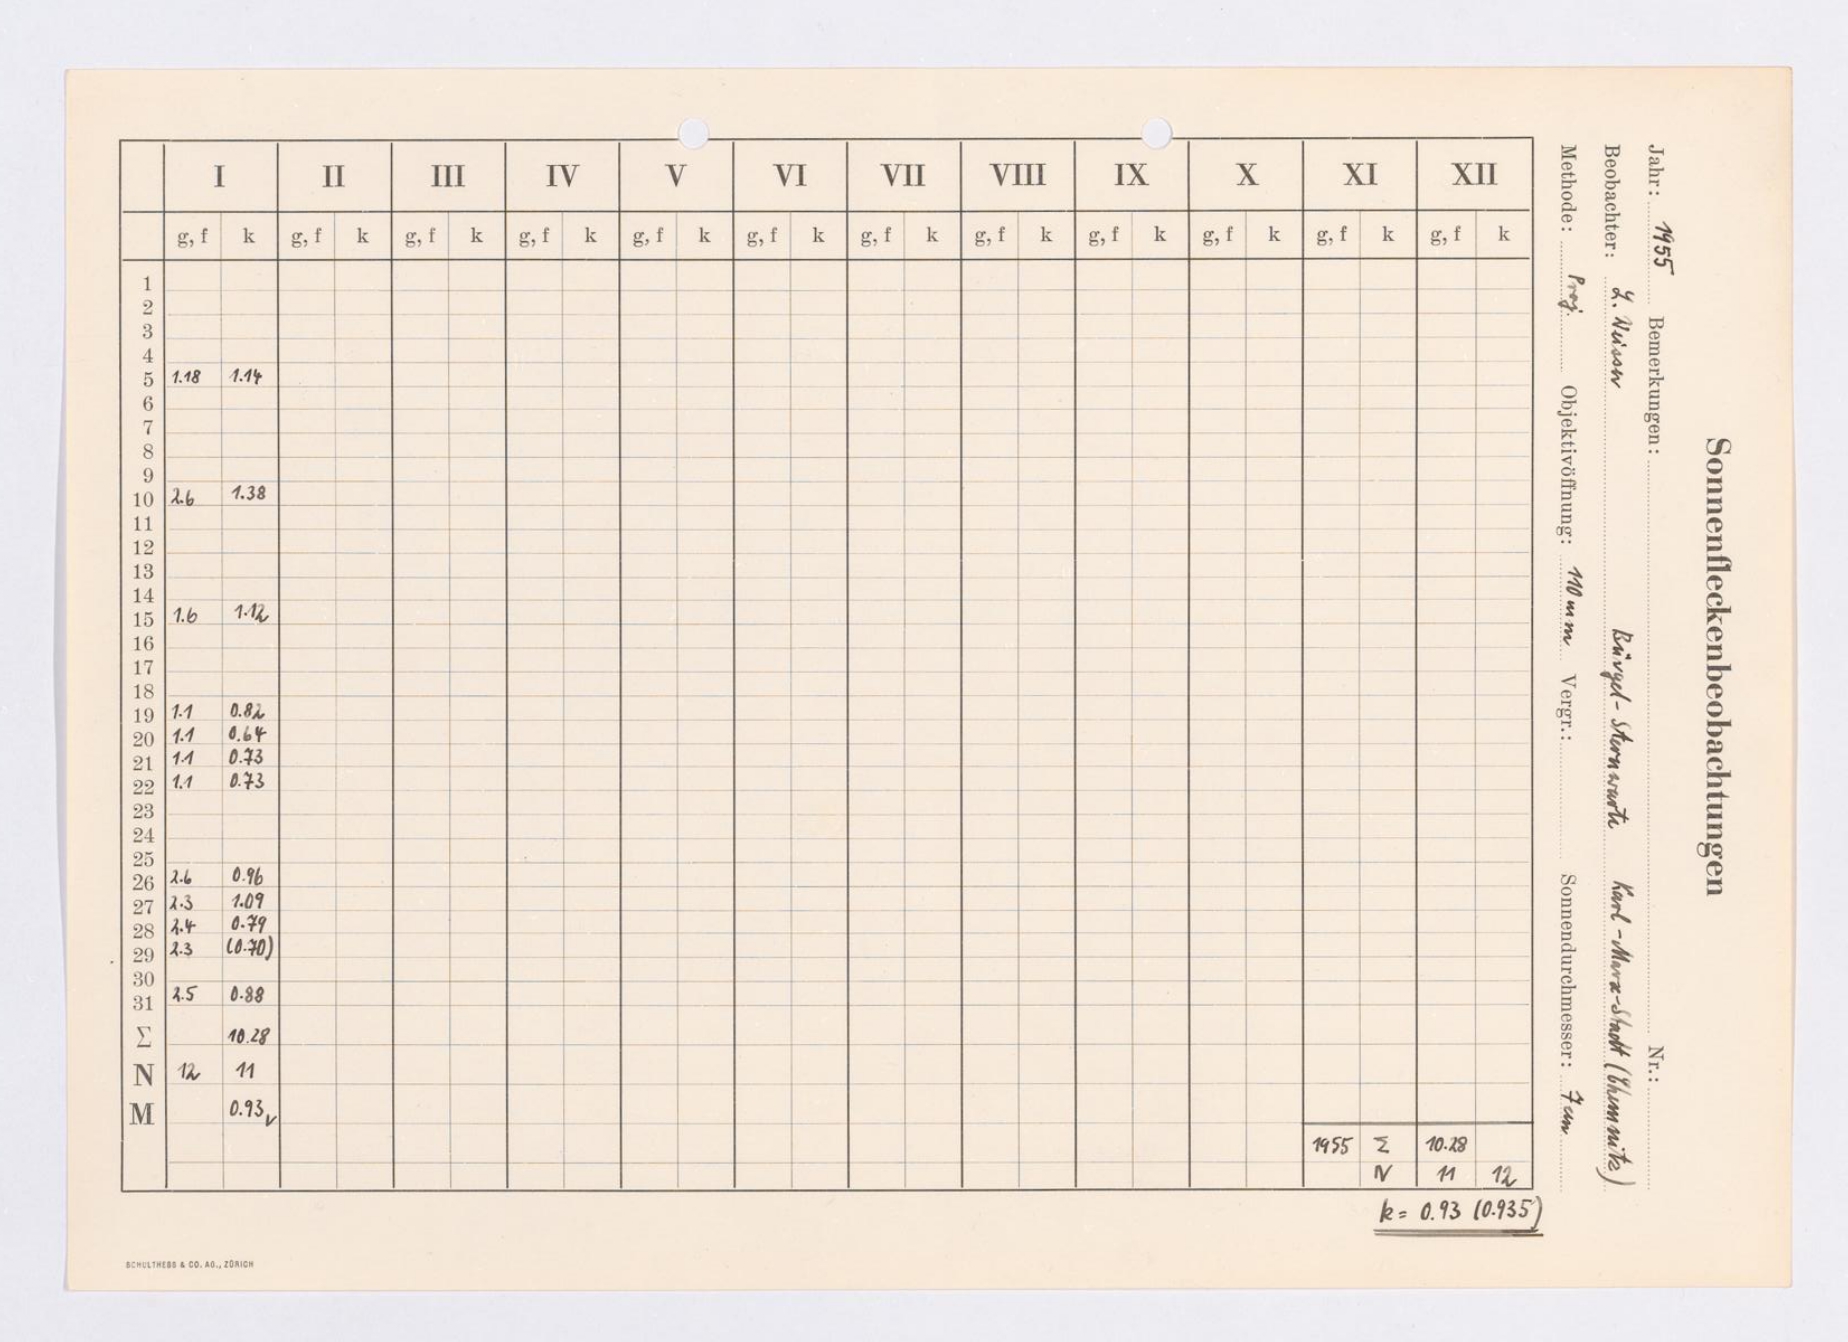 Sonnenfleckenbeobachtungen
Jahr: 1955 Bemerkungen: Nr.:
Beobachter: Bürgel-Sternwarte Karl-Marx-Stadt (Chemnitz)
Methode: Proj. Objektivöffnung: 110 mm Vergr.: Sonnendurchmesser: 7 cm
I II III IV V VI VII VIII IX X XI XII
g, f k g, f k g, f k g, f k g, f k g, f k g, f k g, f k g, f k g, f k g, f k g, f k
1
2
3
4
5 1.18 1.14
6
7
8
9
10 2.6 1.38
11
12
13
14
15 1.6 1.12
16
17
18
19 1.1 0.82
20 1.1 0.64
21 1.1 0.73
22 1.1 0.73
23
24
25
26 2.6 0.96
27 2.3 1.09
28 2.4 0.79
29 2.3 (0.70)
30
31 2.5 0.88
Σ 10.28
N 12 11
M 0.93
1955 Σ 10.28
N 11 12
k = 0.93 (0.935)
SCHULTHESS & CO. AG., ZÜRICH